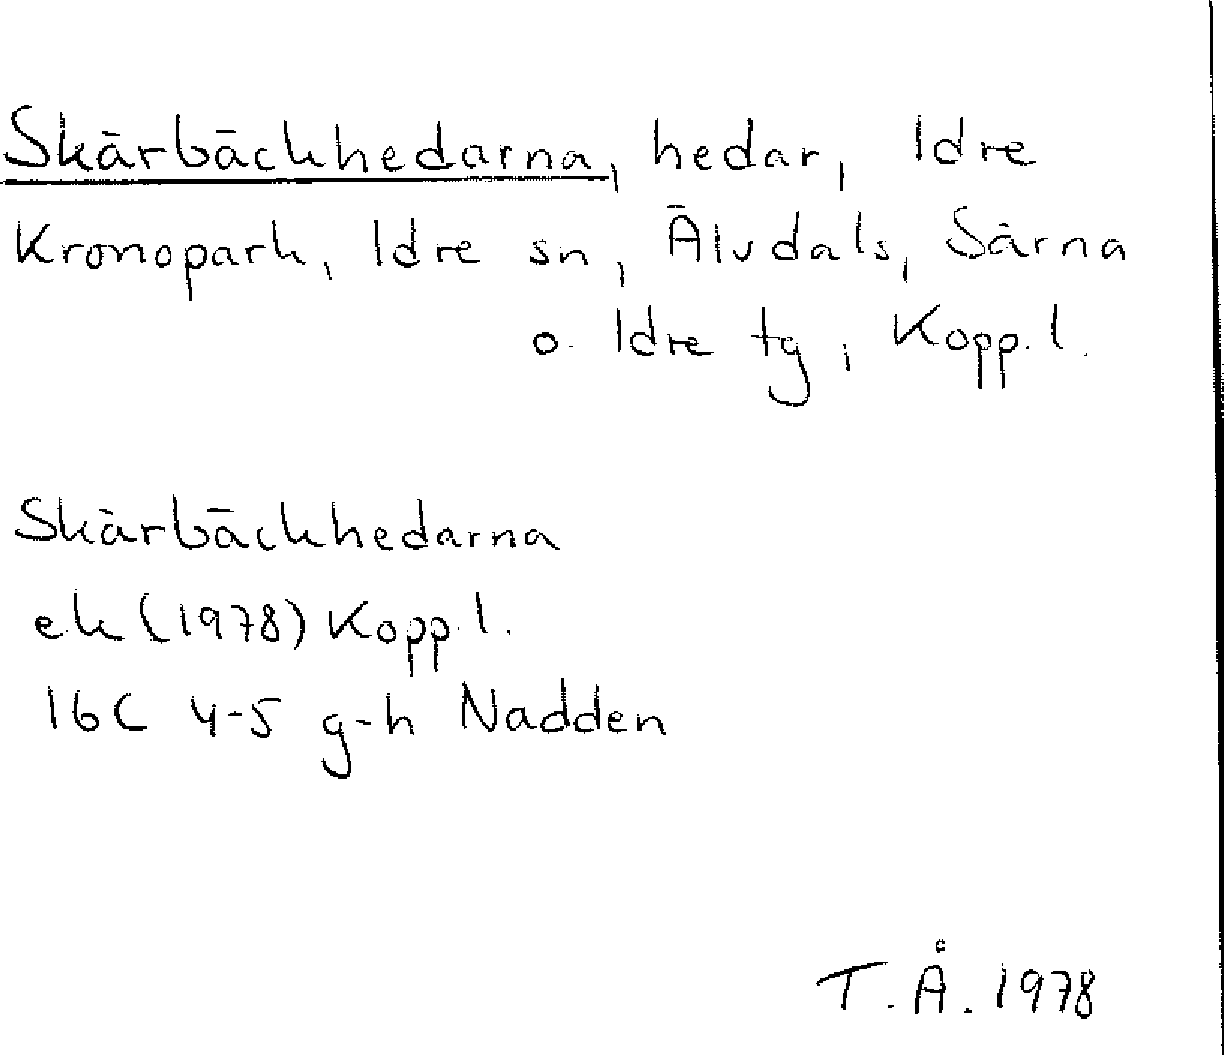 Skärbäckhedarna, hedar, Idre
Kronopark, Idre sn, Älvdals, Särna
o. Idre tg, Kopp. l.
Skärbäckhedarna
ek (1978) Kopp. l.
16C 4-5 g-h Nadden
T. Å. 1978